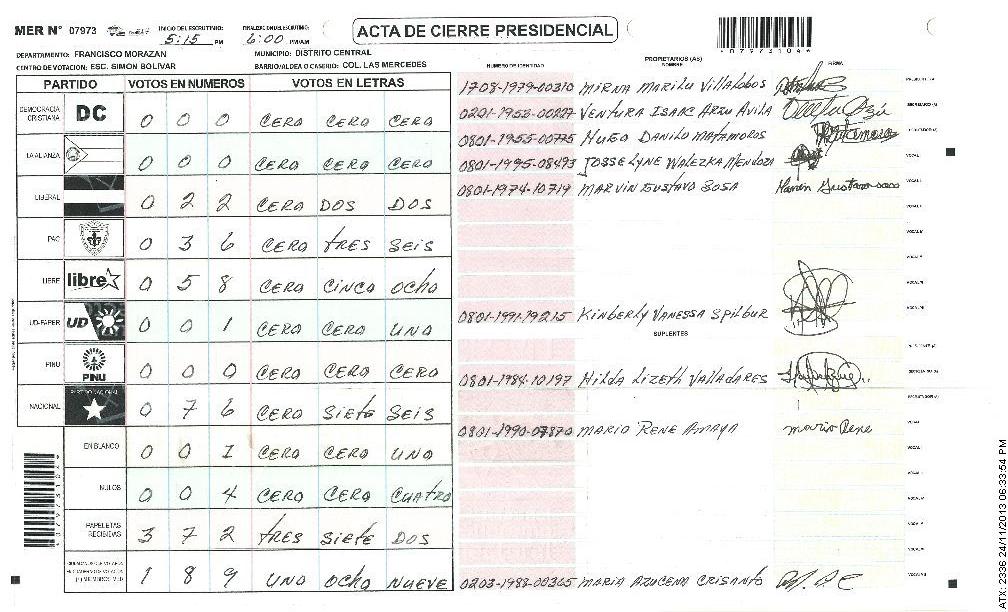 MER N° 07973 INICIO DE ESCRUTINIO: 5:15 PM FINAL DE ESCRUTINIO: 6:00 PM/AM
ACTA DE CIERRE PRESIDENCIAL
0797331044
DEPARTAMENTO: FRANCISCO MORAZAN MUNICIPIO: DISTRITO CENTRAL
CENTRO DE VOTACION: ESC. SIMON BOLIVAR BARRIO/ALDEA O CASERIO: COL. LAS MERCEDES
PARTIDO VOTOS EN NUMEROS VOTOS EN LETRAS
DEMOCRACIA CRISTIANA DC 0 0 0 CERO CERO CERO
LA ALIANZA 0 0 0 CERO CERO CERO
LIBERAL 0 2 2 CERO DOS DOS
PAC 0 3 6 CERO TRES SEIS
LIBRE libre 0 5 8 CERO CINCO OCHO
UD-FAPER UD 0 0 1 CERO CERO UNO
PINU PINU 0 0 0 CERO CERO CERO
NACIONAL PARTIDO NACIONAL 0 7 6 CERO SIETE SEIS
EN BLANCO 0 0 1 CERO CERO UNO
NULOS 0 0 4 CERO CERO CUATRO
PAPELETAS RECIBIDAS 3 7 2 TRES SIETE DOS
1 8 9 UNO OCHO NUEVE
NUMERO DE IDENTIDAD PROPIETARIOS (AS) NOMBRE FIRMA
1708-1979-00310 MIRNA MARILU VILLALOBOS
0201-1953-00227 VENTURA ISAAC ARZU AVILA
0801-1955-00775 HUGO DANILO MATAMOROS
0801-1995-08493 JOSSELYNE WALEZKA MENDOZA
0801-1974-10719 MARVIN GUSTAVO SOSA Marvin Gustavo sosa
0801-1991-19215 KINBERLY VANESSA SPILBUR
SUPLENTES
0801-1984-10197 HILDA LIZETH VALLADARES
0801-1990-07870 MARIO RENE AMAYA mario Rene
0203-1988-00365 MARIA AZUCENA CRISANTO
ATX: 2336 24/11/2013 06:33:54 PM